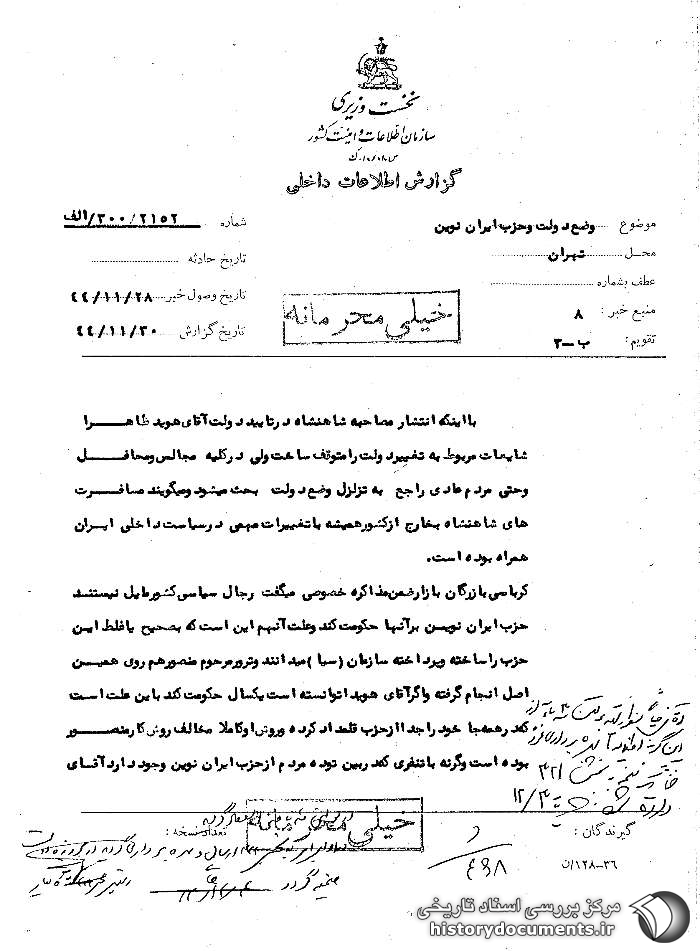 نخست وزیری
سازمان اطلاعات و امنیت کشور
گزارش اطلاعات داخلی
موضوع وضع دولت و حزب ایران نوین
شماره ۳۰۰/۲۱۵۲/الف
محل تهران
تاریخ حادثه
عطف بشماره
تاریخ وصول خبر ۴۴/۱۱/۲۸
منبع خبر : ۸
تاریخ گزارش ۴۴/۱۱/۳۰
تقویم : ب-۳
خیلی محرمانه
با اینکه انتشار مصاحبه شاهنشاه در تایید دولت آقای هویدا ظاهرا
شایعات مربوط به تغییر دولت را متوقف ساخت ولی در کلیه مجالس و محافل
و حتی مردم عادی راجع به تزلزل وضع دولت بحث میشود و میگویند مسافرت
های شاهنشاه بخارج از کشور همیشه با تغییرات مهمی در سیاست داخلی ایران
همراه بوده است.
کرباسی بازرگان بازار ضمن مذاکره خصوصی میگفت رجال سیاسی کشور مایل نیستند
حزب ایران نوین برآنها حکومت کند و علت آنهم این است که بصحیح یا غلط این
حزب را ساخته و پرداخته سازمان (سیا) میدانند و ترور مرحوم منصور هم روی همین
اصل انجام گرفته و اگر آقای هویدا توانسته است یکسال حکومت کند باین علت است
که در همه جا خود را جدا از حزب قلمداد کرده و روش او کاملا مخالف روش کار منصور
بوده است وگرنه با تنفری که در بین توده مردم از حزب ایران نوین وجود دارد آقای
خیلی محرمانه
گیرندگان :
تعداد نسخه :
۳۶-۱۲۸/ن
مرکز بررسی اسناد تاریخی
historydocuments.ir